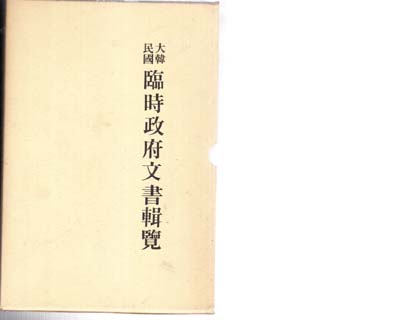 大韓
民國
臨時政府文書輯覽